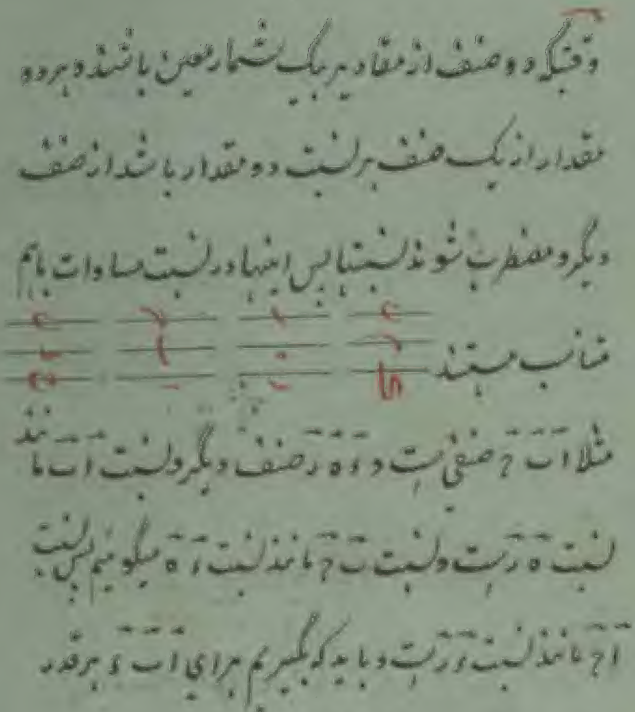 وقتیکه دو صنف از مقادیر بیک شمار معین باشند و هر دو
مقدار از یک صنف بر نسبت دو مقدار باشد از صنف
دیگر و مضطرب شوند نسبتها پس اینها در نسبت مساوات باهم
متناسب هستند
مثلا آ ب ج صنفی است و ء ه ر صنف دیگر و نسبت آ ب مانند
نسبت ه ر است و نسبت ب ج مانند نسبت ء ه میگوئیم پس نسبت
آ ج مانند نسبت ء ر است و باید که بگیریم برای آ ب ء هر قدر